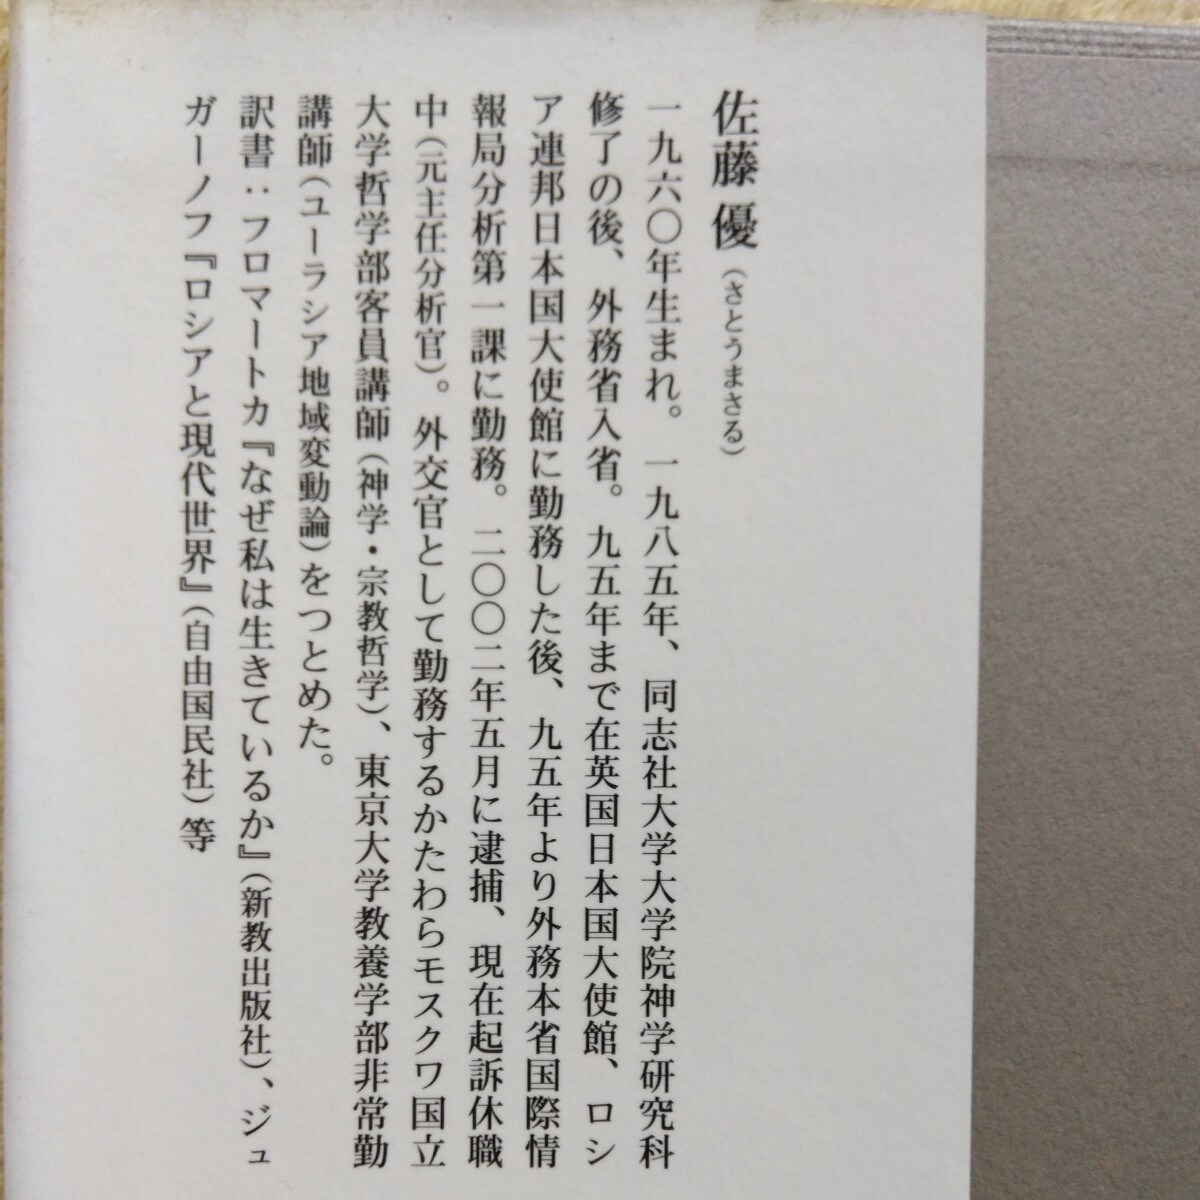 佐藤 優（さとうまさる）
一九六〇年生まれ。一九八五年、同志社大学大学院神学研究科
修了の後、外務省入省。九五年まで在英国日本国大使館、ロシ
ア連邦日本国大使館に勤務した後、九五年より外務本省国際情
報局分析第一課に勤務。二〇〇二年五月に逮捕、現在起訴休職
中（元主任分析官）。外交官として勤務するかたわらモスクワ国立
大学哲学部客員講師（神学・宗教哲学）、東京大学教養学部非常勤
講師（ユーラシア地域変動論）をつとめた。
訳書：フロマートカ『なぜ私は生きているか』（新教出版社）、ジュ
ガーノフ『ロシアと現代世界』（自由国民社）等